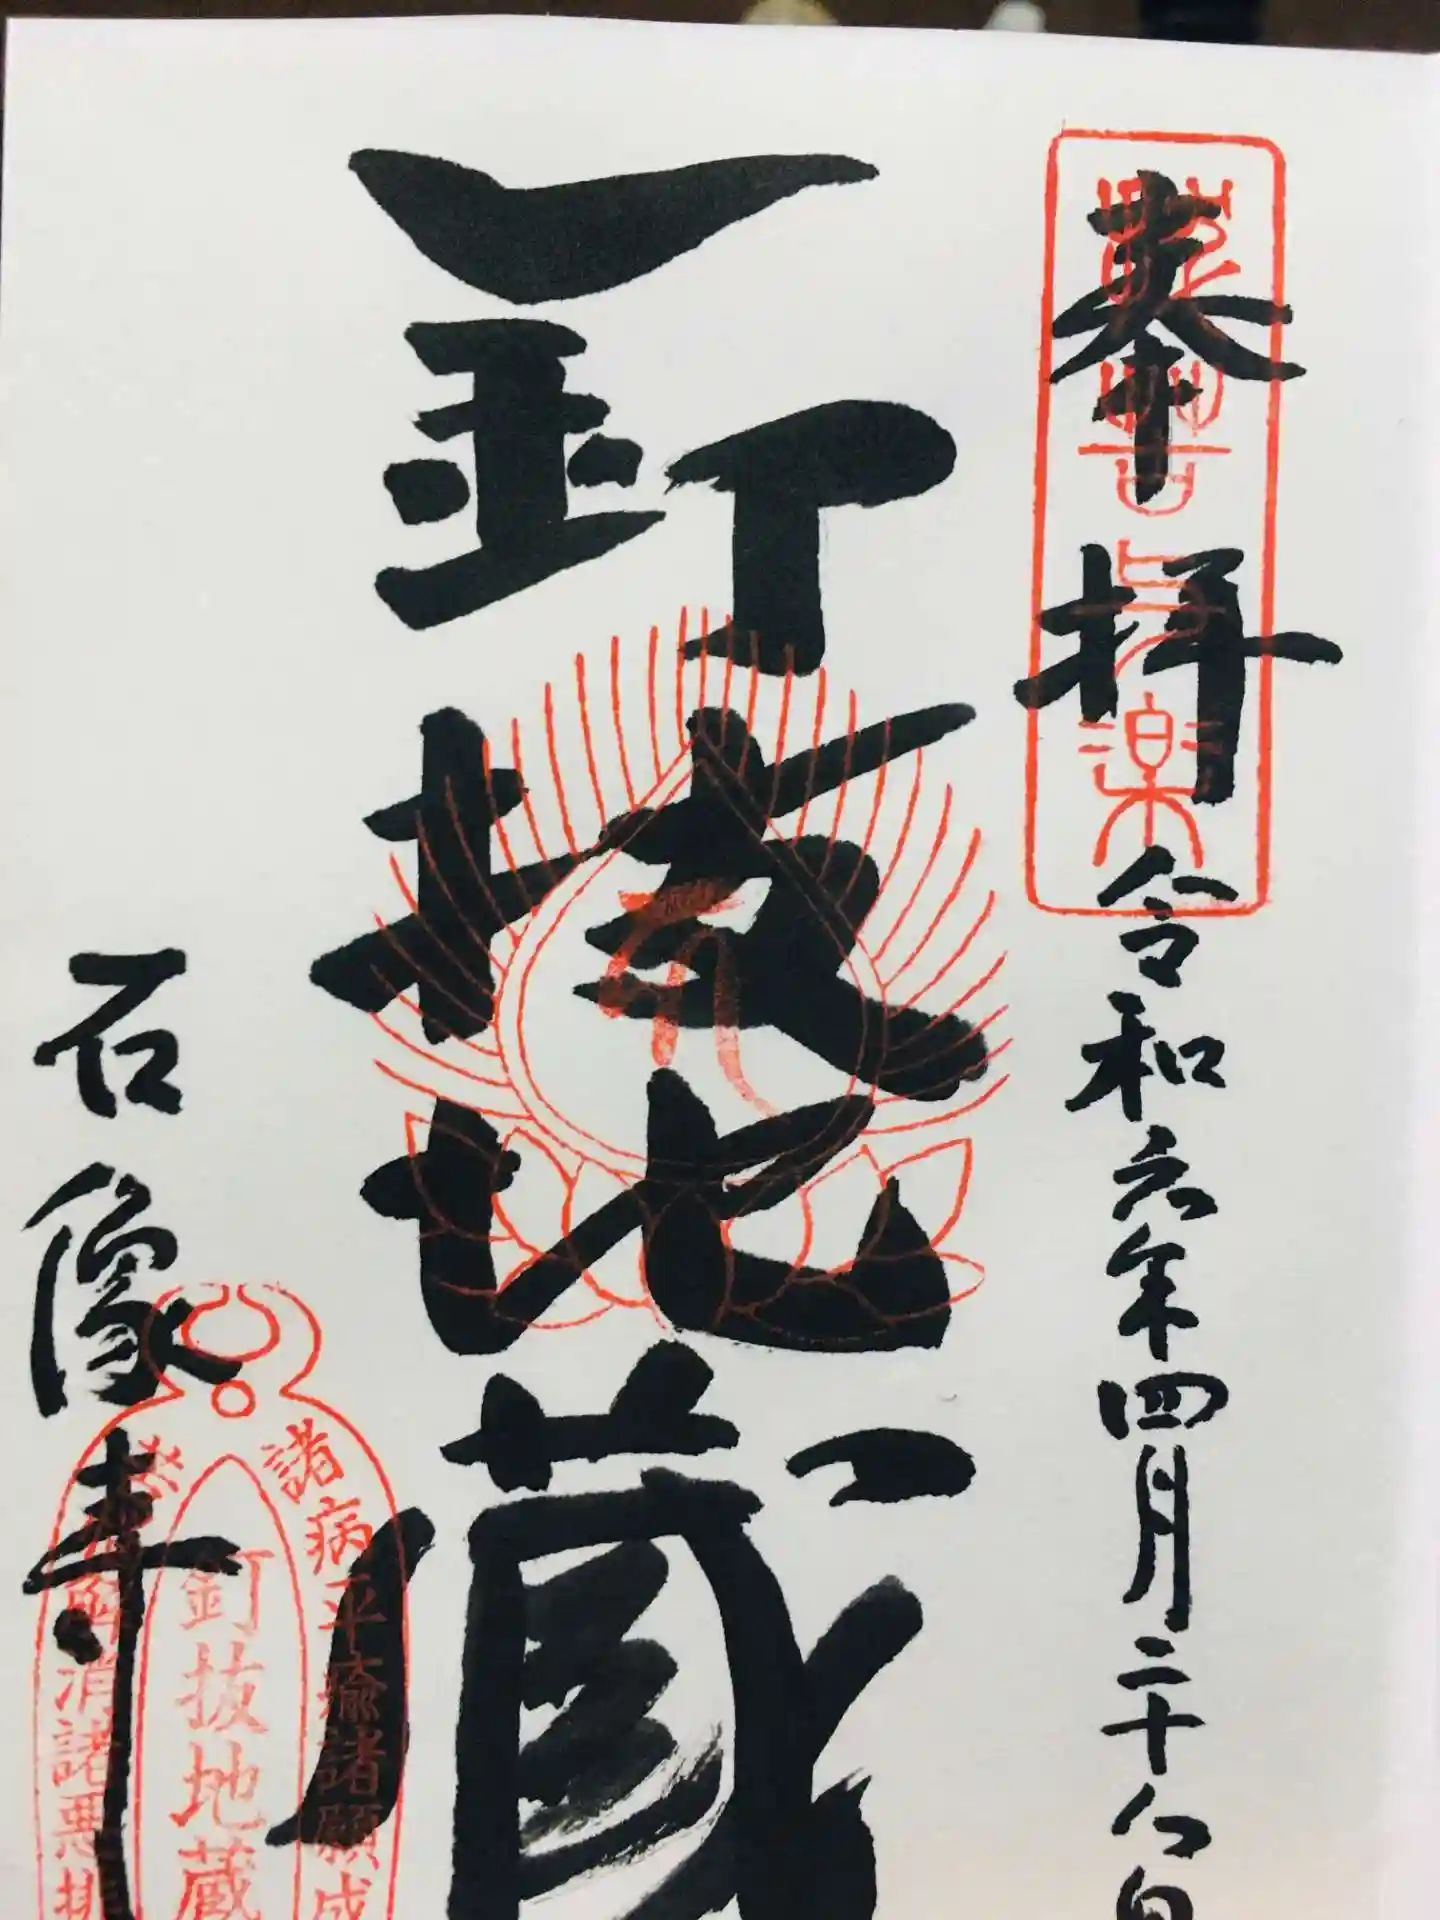 奉拝
令和六年四月二十八日
釘抜地蔵
石像寺
諸病平癒諸願成
釘抜地蔵
消諸悪排